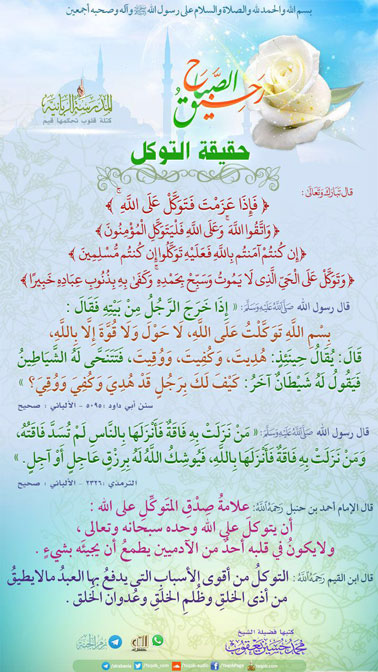 بسم الله والحمد لله والصلاة والسلام على رسول الله ﷺ وآله وصحبه أجمعين
رحيق الصباح
المدرسة الربانية
كتلة قلوب تحكمها قيم
حقيقة التوكل
قال تبارك وتعالى :
﴿ فَإِذَا عَزَمْتَ فَتَوَكَّلْ عَلَى اللَّهِ ۚ ﴾
﴿ وَاتَّقُوا اللَّهَ ۚ وَعَلَى اللَّهِ فَلْيَتَوَكَّلِ الْمُؤْمِنُونَ ﴾
﴿ إِن كُنتُمْ آمَنتُم بِاللَّهِ فَعَلَيْهِ تَوَكَّلُوا إِن كُنتُم مُّسْلِمِينَ ﴾
﴿ وَتَوَكَّلْ عَلَى الْحَيِّ الَّذِي لَا يَمُوتُ وَسَبِّحْ بِحَمْدِهِ ۚ وَكَفَىٰ بِهِ بِذُنُوبِ عِبَادِهِ خَبِيرًا ﴾
قال رسول الله ﷺ : « إِذَا خَرَجَ الرَّجُلُ مِنْ بَيْتِهِ فَقَالَ :
بِسْمِ اللَّهِ تَوَكَّلْتُ عَلَى اللَّهِ، لَا حَوْلَ وَلَا قُوَّةَ إِلَّا بِاللَّهِ،
قَالَ: يُقَالُ حِينَئِذٍ: هُدِيتَ، وَكُفِيتَ، وَوُقِيتَ، فَتَتَنَحَّى لَهُ الشَّيَاطِينُ
فَيَقُولُ لَهُ شَيْطَانٌ آخَرُ: كَيْفَ لَكَ بِرَجُلٍ قَدْ هُدِيَ وَكُفِيَ وَوُقِيَ؟ »
سنن أبي داود : ٥٠٩٥ - الألباني : صحيح
قال رسول الله ﷺ : « مَنْ نَزَلَتْ بِهِ فَاقَةٌ فَأَنْزَلَهَا بِالنَّاسِ لَمْ تُسَدَّ فَاقَتُهُ،
وَمَنْ نَزَلَتْ بِهِ فَاقَةٌ فَأَنْزَلَهَا بِاللَّهِ، فَيُوشِكُ اللَّهُ لَهُ بِرِزْقٍ عَاجِلٍ أَوْ آجِلٍ. »
الترمذي : ٢٣٢٦ - الألباني : صحيح
قال الإمام أحمد بن حنبل رحمه الله : علامةُ صِدْقِ المتوكِّلِ على الله :
أن يتوكلَ على الله وحده سبحانه وتعالى ،
ولايكونُ في قلبِه أحدٌ من الآدميين يطمعُ أن يجيئَه بشيءٍ .
قال ابن القيم رحمه الله : التوكلُ من أقوى الأسبابِ التي يدفعُ بها العبدُ مالايطيقُ
من أذى الخلقِ وظُلمِ الخلقِ وعُدوانِ الخلقِ .
كتبها فضيلة الشيخ
محمد حسين يعقوب